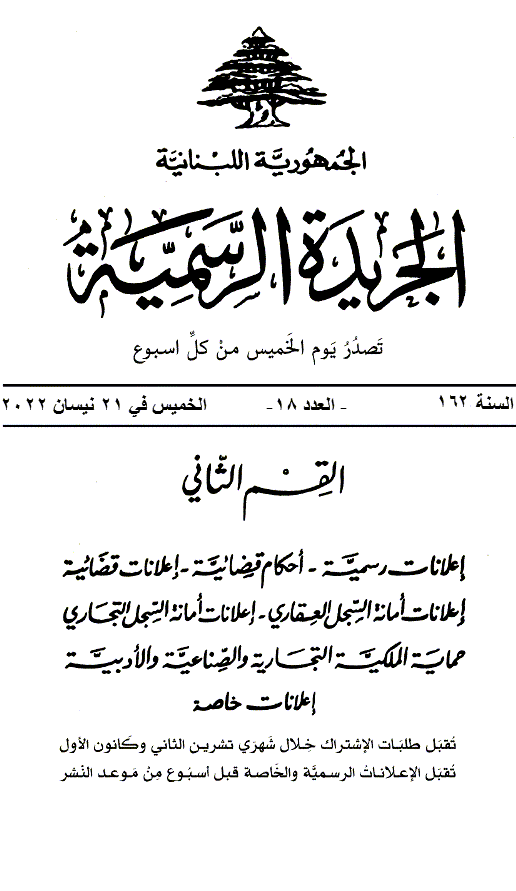 الجُمهُوريَّة اللبْنانيَّة
الجَريدَة الرسَّميَّة
تَصدُرُ يَوم الخَميس منْ كلِّ اسبوع
السنة ١٦٢ - العدد ١٨- الخميس في ٢١ نيسان ٢٠٢٢
القِسْم الثّاني
إعلانات رسميَّة - أحكام قضائيَّة - إعلانات قضائية
إعلانات أمانة السِّجل العقاري - إعلانات أمانة السِّجل التجاري
حماية الملكيَّة التجارية والصِّناعيَّة والأدبيَّة
إعلانات خاصة
تُقبَل طلبَات الإشتراك خِلال شَهرَي تشرين الثاني وكَانون الأول
تُقبَل الإعلاناتُ الرسميَّة والخَاصة قبل أسبُوع مِنْ مَوعد النَشر